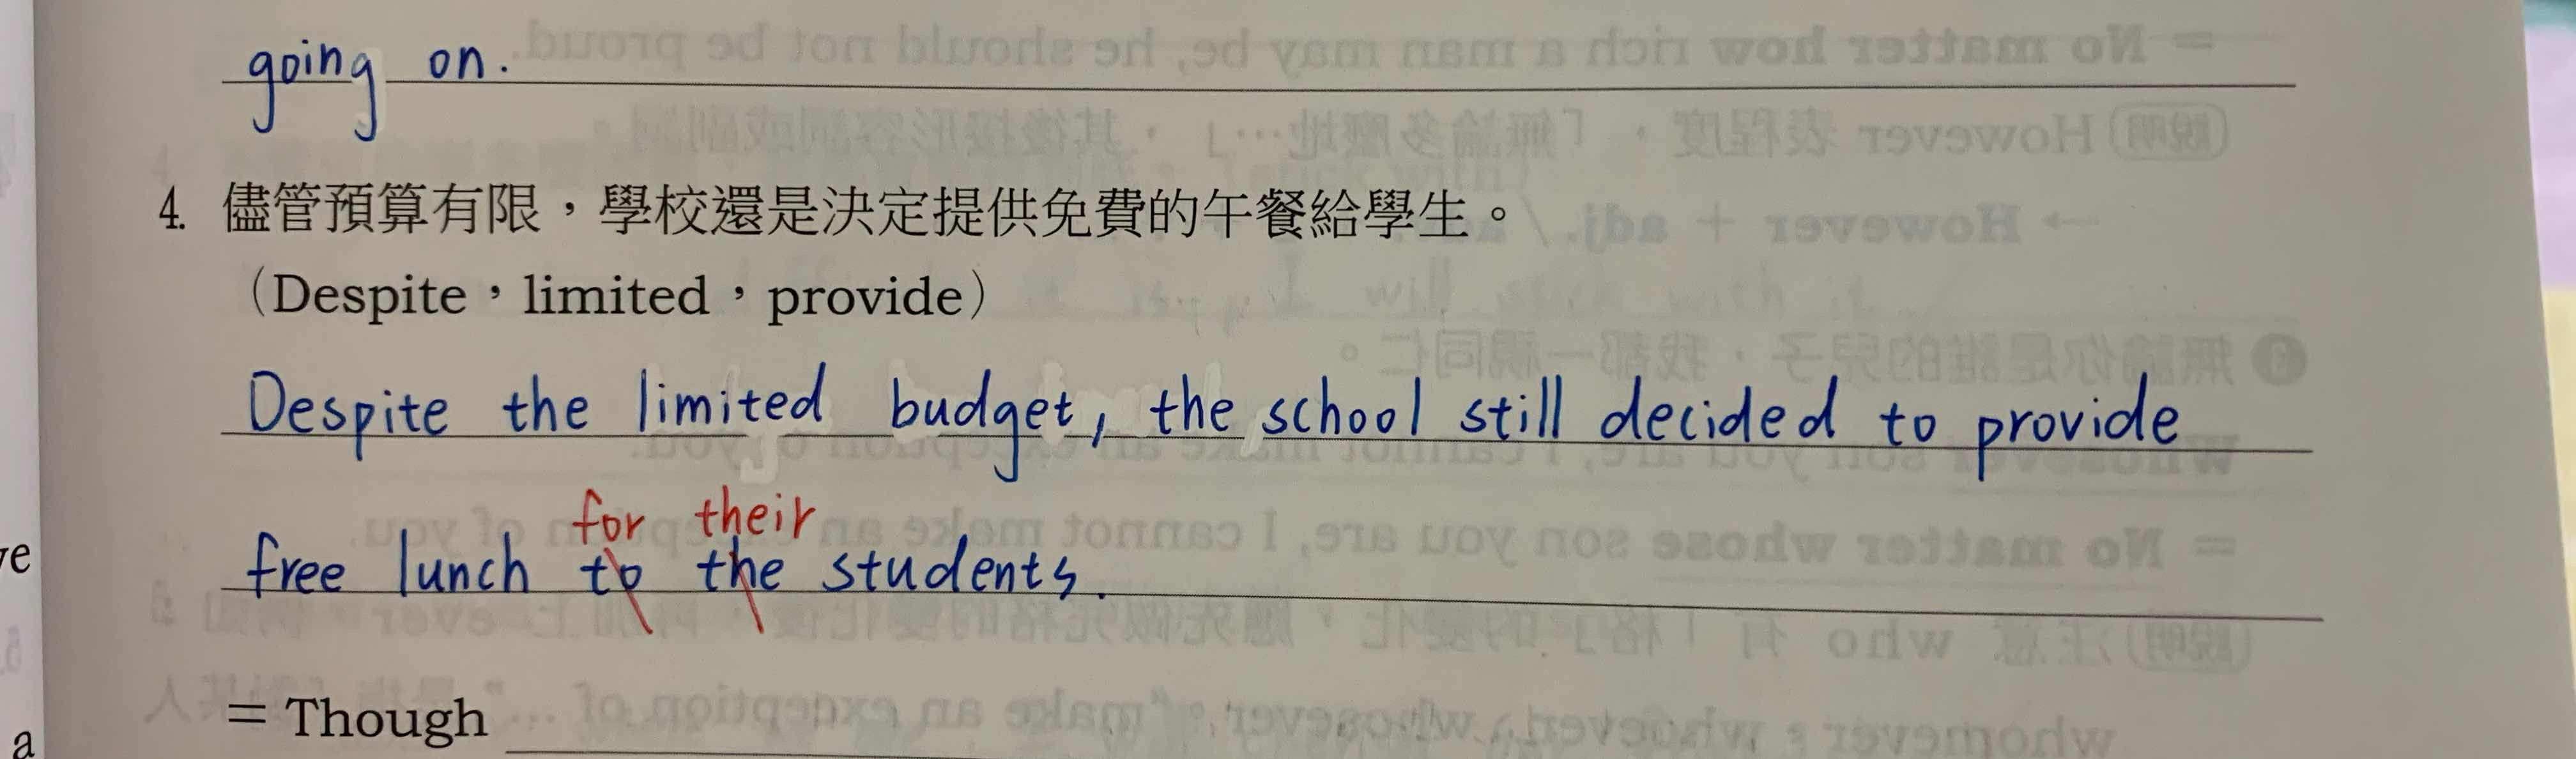 going on.
4. 儘管預算有限，學校還是決定提供免費的午餐給學生。
（Despite，limited，provide）
Despite the limited budget, the school still decided to provide
for their
free lunch to the students.
= Though
ve
a